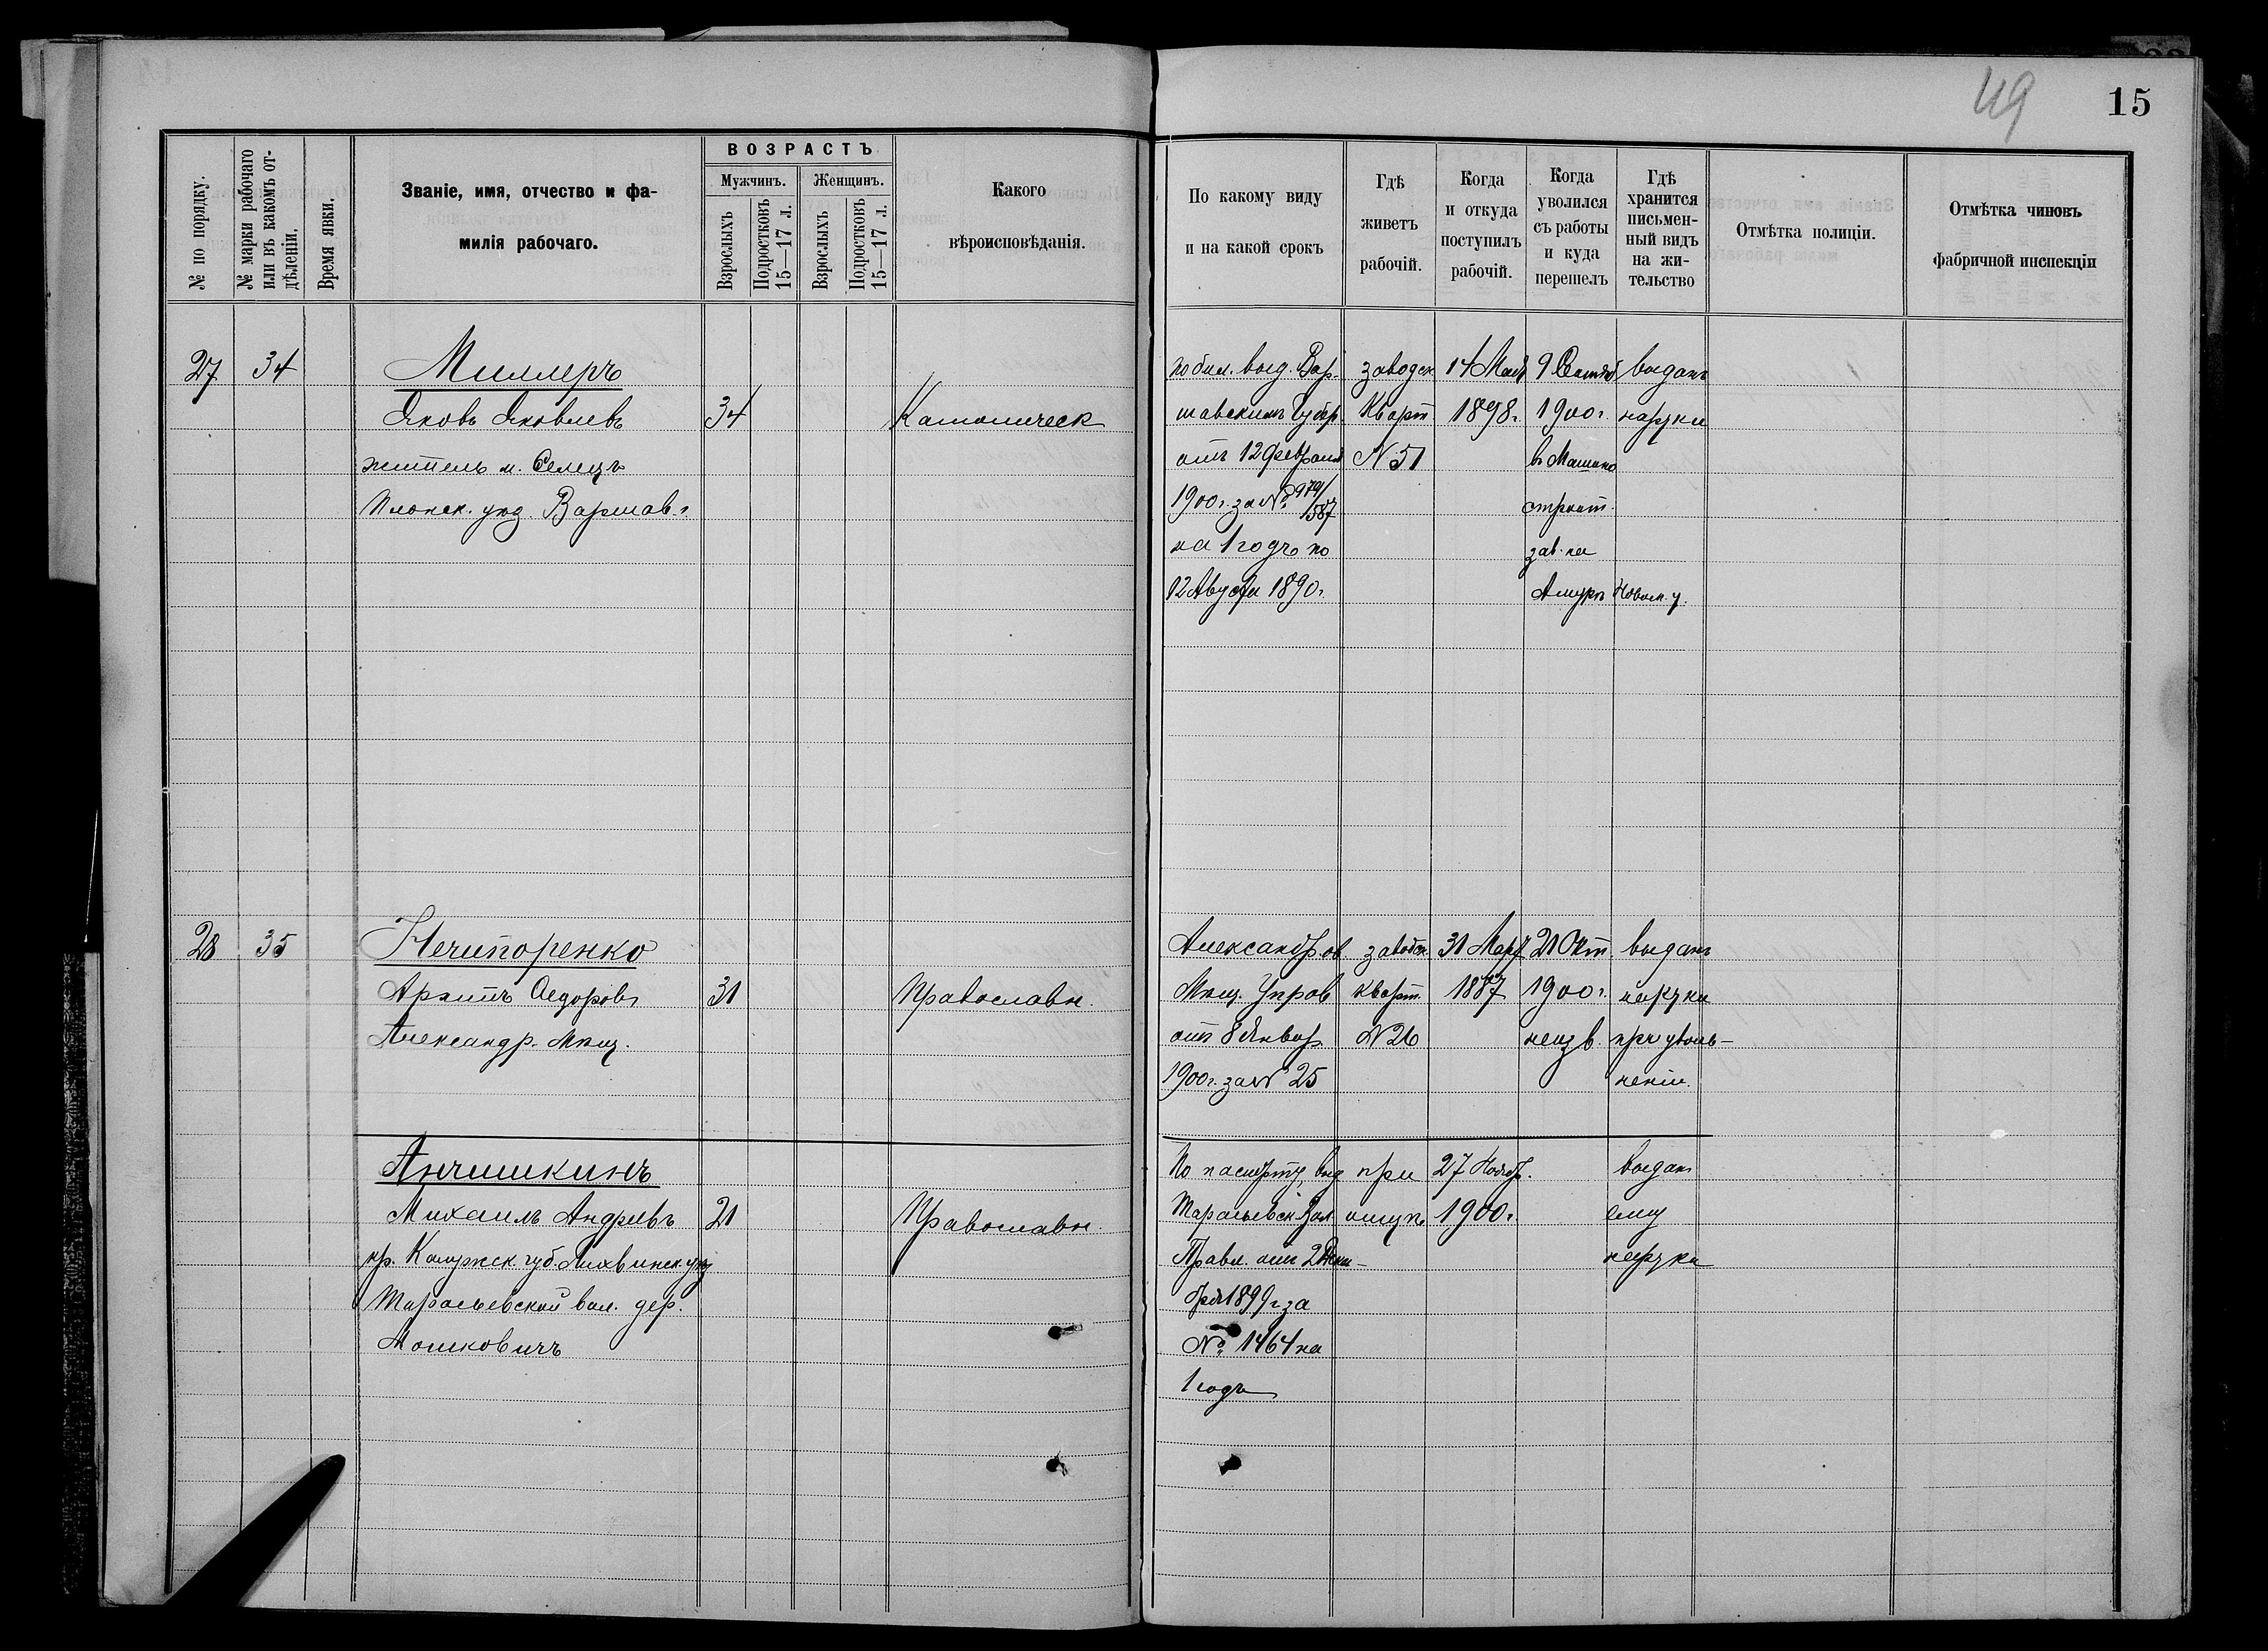 49
15
№ по порядку.
№ марки рабочаго
или въ какомъ от-
дѣленіи.
Время явки.
Званіе, имя, отчество и фа-
милія рабочаго.
ВОЗРАСТЪ
Мужчинъ.
Женщинъ.
Взрослыхъ
Подростковъ
15—17 л.
Взрослыхъ
Подростковъ
15—17 л.
Какого
вѣроисповѣданія.
По какому виду
и на какой срокъ
Гдѣ
живетъ
рабочій.
Когда
и откуда
поступилъ
рабочій.
Когда
уволился
съ работы
и куда
перешелъ
Гдѣ
хранится
письмен-
ный видъ
на жи-
тельство
Отмѣтка полиціи.
Отмѣтка чиновъ
фабричной инспекціи
27
34
Миллеръ
Яковъ Яковлевъ
житель м. Селецъ
Плонск. уѣзд. Варшав. г.
34
Католическ
по бил. выд. Вар-
шавскимъ Губер
отъ 12 Февраля
1900 г. за № 979/1587
на 1 годъ по
12 Августа 1890 г.
заводск
Кварт
№ 51
14 Мая
1898 г.
9 Сентяб
1900 г.
в Машино
строит.
зав. на
Амуръ Новом. у.
выданъ
на руки
28
35
Нечипоренко
Архипъ Федоровъ
Александр. Мѣщ.
31
Православн.
Александров
Мѣщ. Управ
отъ 8 Январ
1900 г. за № 25
заводск
кварт.
№ 26
31 Март
1887
21 Окт
1900 г.
неизв.
выданъ
на руки
при уволь-
неніи.
Анчишкинъ
Михаилъ Андреевъ
кр. Калужск. губ. Лихвинск. уѣз
Тарасьевской вол. дер.
Мошковичъ
21
Православн.
По паспорту, выд
Тарасьевск Вол
Правл. отъ 2 Дека-
бря 1899 г за
№ 1464 на
1 годъ
при
27 Ноябр.
1900 г.
выдан
ему
на руки